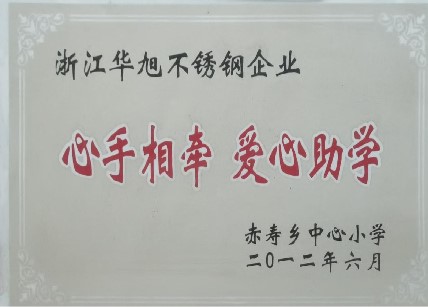 浙江华旭不锈钢企业
心手相牵 爱心助学
赤寿乡中心小学
二〇一二年六月